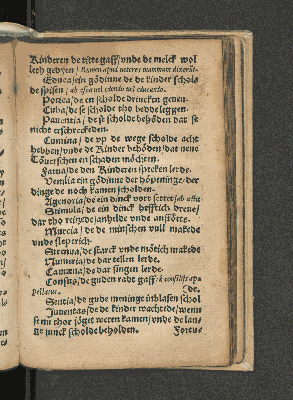 Kinderen de titte gaff/vnde de melck wol
leth gedyen/ Rumen apud veteres mammam dixerūt.
Educa/ein gödinne de de kinder schold
de spisen/ ab esca uel cibatu uel educatio.
Potica/de en scholde drincken geuen.
Cuba/de se scholde tho bedde leggen.
Pauentia/de se scholde behöden dat se
nicht erschreckeden.
Cumina/de vp de wege scholde acht
hebben/vnde de Kinder behöden/dat nene
Töuerschen en schaden möchten.
Fatua/de den Kinderen spreken lerde.
Venilia ein gödinne der höpeninge/der
dinge de noch kamen scholden.
Agenoria/de ein dinck vort settet/ab actu
Stimula/de ein dinck hefftich dreue/
dar tho reitzede/anhelde vnde anstötte.
Murcia/de de minschen vull makede
vnde sleprich.
Strenua/de starck vnde mötich makede
Numeria/de dar tellen lerde.
Camæna/de dar singen lerde.
Consus/de guden radt gaff/ à consilijs ap
pellatus. (de.
Sentia/de gude meninge inblasen schol
Juuentas/de de kinder wachtede/wenn
se nu thor jöget weren kamen/vnde de lan-
ge junck scholde beholden. Fortu-